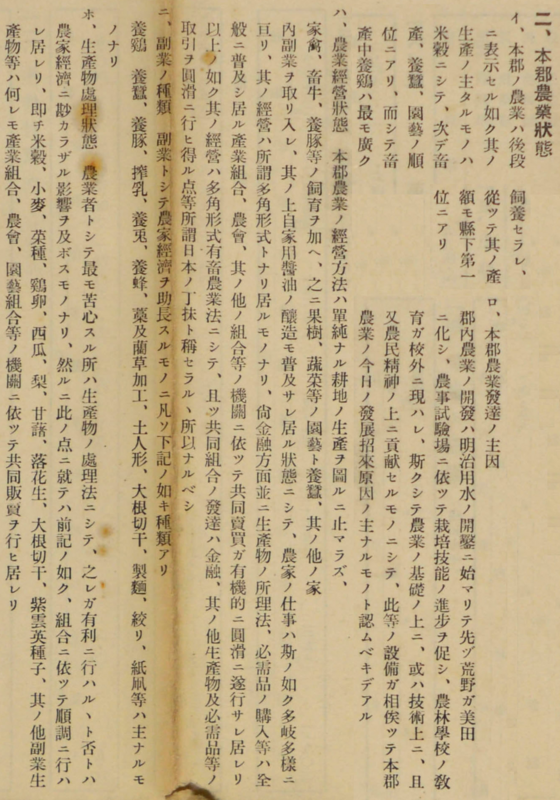 二、本郡農業狀態
イ、本郡ノ農業ハ後段
ニ表示セル如ク其ノ
生產ノ主タルモノハ
米穀ニシテ、次デ畜
產、養蠶、園藝ノ順
位ニアリ、而シテ畜
產中養鷄ハ最モ廣ク
飼養セラレ、
從ツテ其ノ產
額モ縣下第一
位ニアリ
ロ、本郡農業發達ノ主因
郡內農業ノ開發ハ明治用水ノ開鑿ニ始マリテ先ヅ荒野ガ美田
ニ化シ、農事試驗場ニ依ツテ栽培技能ノ進步ヲ促シ、農林學校ノ敎
育ガ校外ニ現ハレ、斯クシテ農業ノ基礎ノ上ニ、或ハ技術上ニ、且
又農民精神ノ上ニ貢献セルモノニシテ、此等ノ設備ガ相俟ツテ本郡
農業ノ今日ノ發展招來原因ノ主ナルモノト認ムベキデアル
ハ、農業經營狀態　本郡農業ノ經營方法ハ單純ナル耕地ノ生產ヲ圖ルニ止マラズ、
家禽、畜牛、養豚等ノ飼育ヲ加ヘ、之ニ果樹、蔬菜等ノ園藝ト養蠶、其ノ他ノ家
內副業ヲ取リ入レ、其ノ上自家用醬油ノ釀造モ普及サレ居ル狀態ニシテ、農家ノ仕事ハ斯ノ如ク多岐多樣ニ
亘リ、其ノ經營ハ所謂多角形式トナリ居ルモノナリ、尙金融方面並ニ生產物ノ所理法、必需品ノ購入等ハ全
般ニ普及シ居ル產業組合、農會、其ノ他ノ組合等ノ機關ニ依ツテ共同賣買ガ有機的ニ圓滑ニ遂行サレ居レリ
以上ノ如ク其ノ經營ハ多角形式有畜農業法ニシテ、且ツ共同組合ノ發達ハ金融、其ノ他生產物及必需品等ノ
取引ヲ圓滑ニ行ヒ得ル点等所謂日本ノ丁抹ト稱セラルヽ所以ナルベシ
ニ、副業ノ種類　副業トシテ農家經濟ヲ助長スルモノニ凡ソ下記ノ如キ種類アリ
養鷄、養蠶、養豚、搾乳、養兎、養蜂、藁及藺草加工、土人形、大根切干、製麵、絞リ、紙凧等ハ主ナルモ
ノナリ
ホ、生產物處理狀態　農業者トシテ最モ苦心スル所ハ生產物ノ處理法ニシテ、之レガ有利ニ行ハルヽト否トハ
農家經濟ニ尠カラザル影響ヲ及ボスモノナリ、然ルニ此ノ点ニ就テハ前記ノ如ク、組合ニ依ツテ順調ニ行ハ
レ居レリ　卽チ米穀、小麥、菜種、鷄卵、西瓜、梨、甘藷、落花生、大根切干、紫雲英種子、其ノ他副業生
產物等ハ何レモ產業組合、農會、園藝組合等ノ機關ニ依ツテ共同販賣ヲ行ヒ居レリ